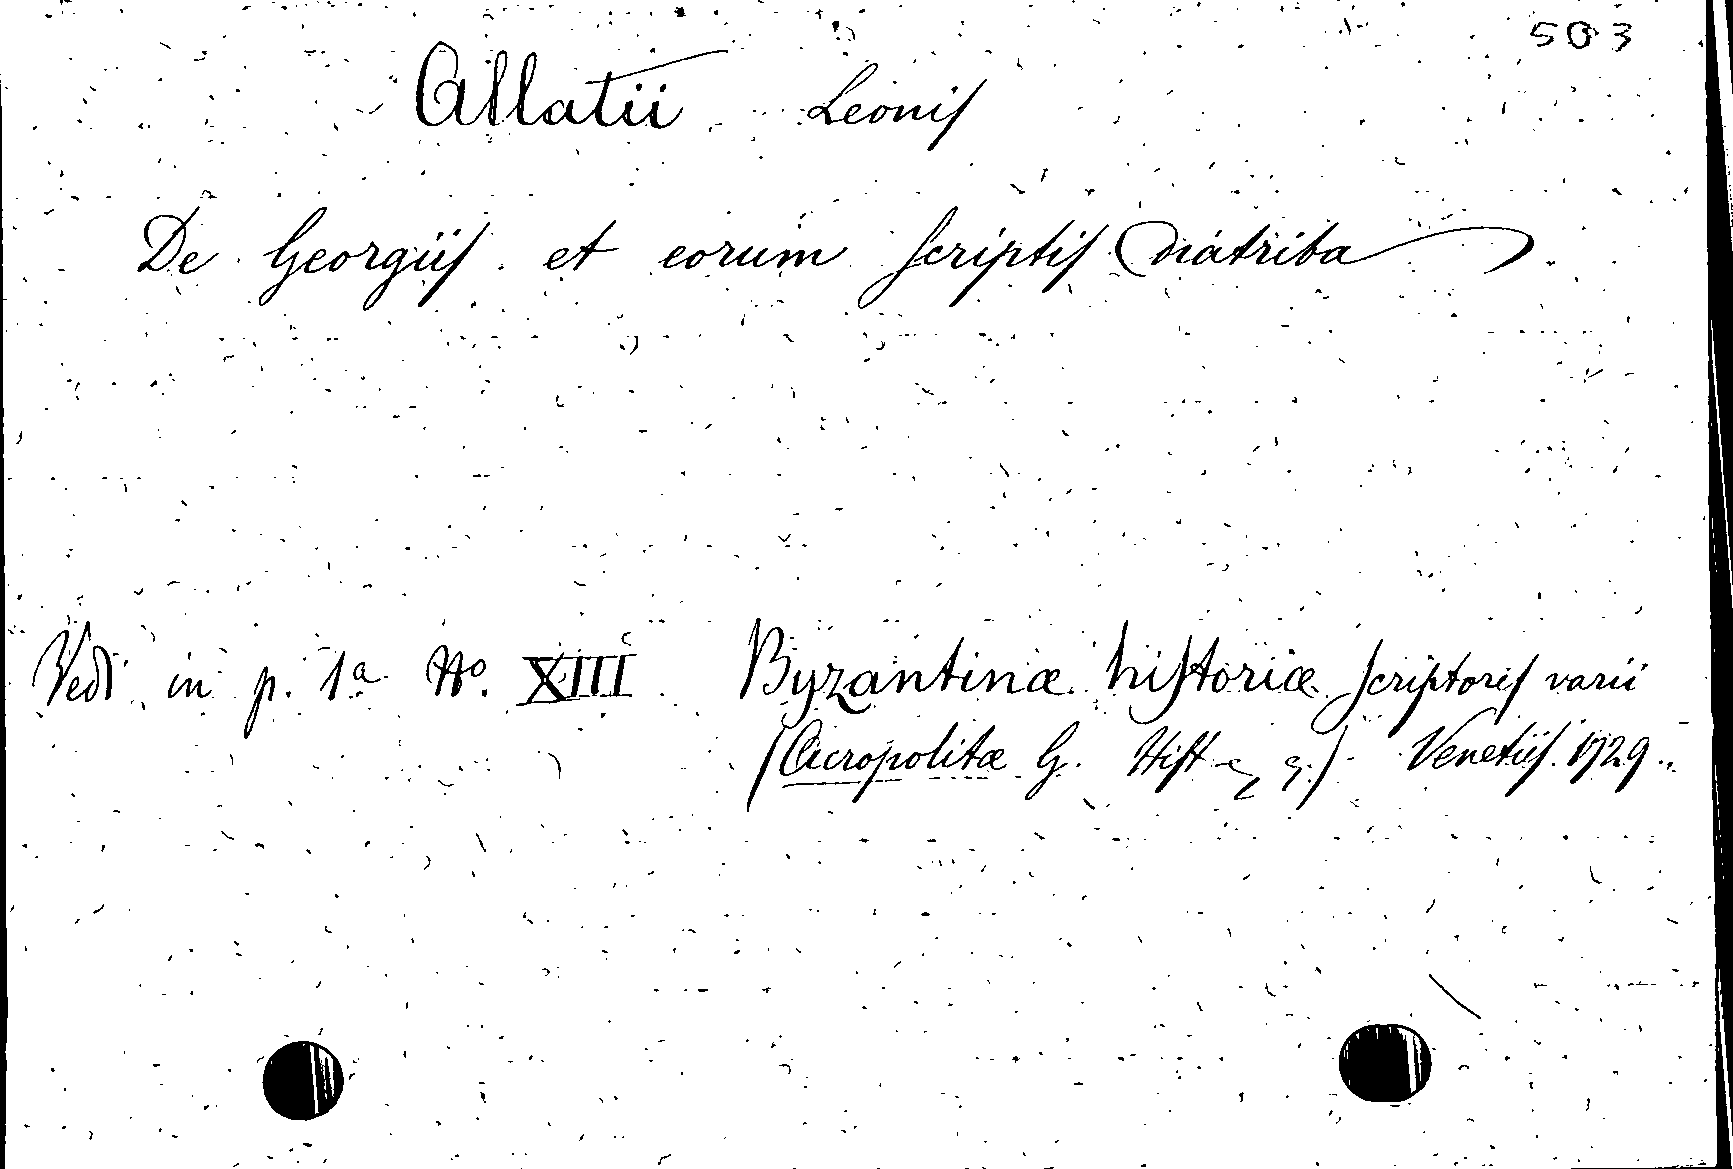 503
Allatii Leonis
De Georgiis et eorum scriptis diatriba
Vedi in p. 1a No. XIII Byzantinæ historiæ scriptores varii
(Acropolitæ G. Hist. ) Venetiis 1729.